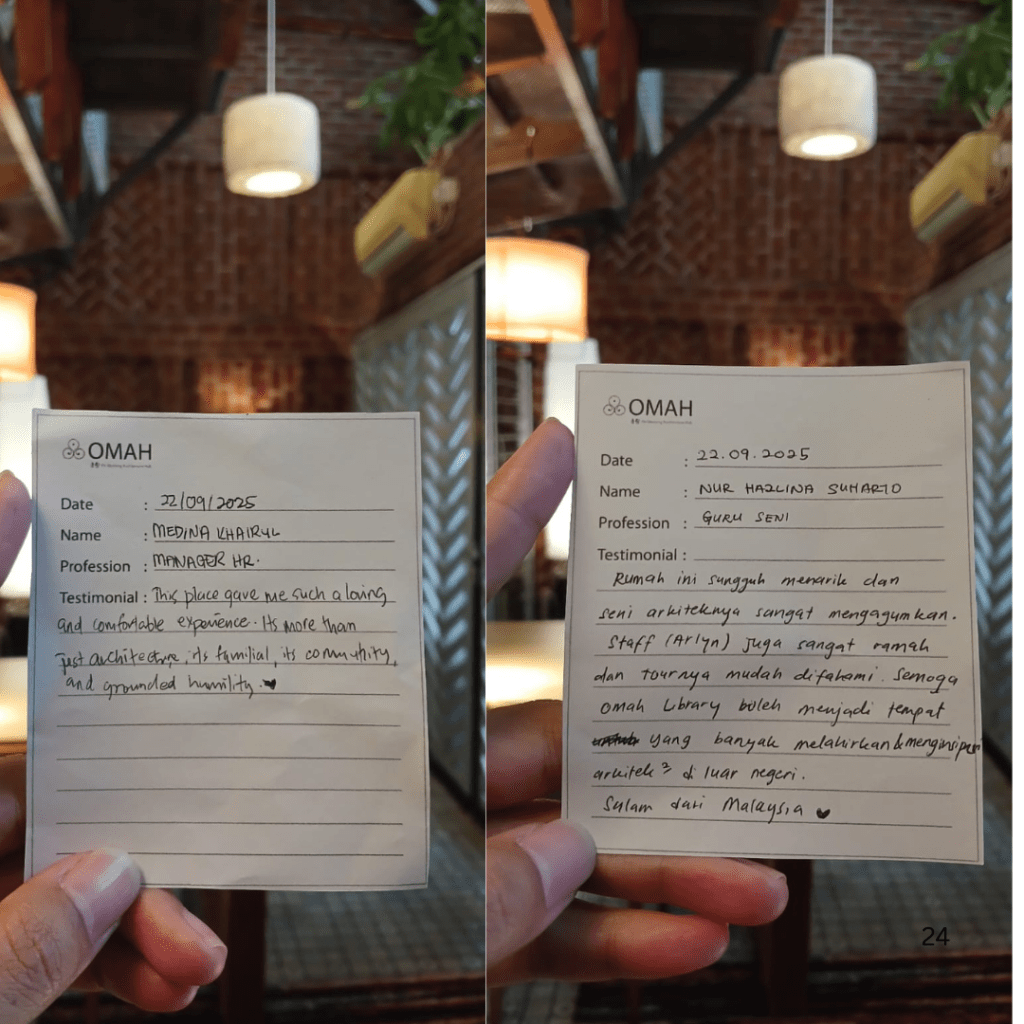 OMAH
Date : 22/09/2025
Name : MEDINA KHAIRUL
Profession : MANAGER HR.
Testimonial : This place gave me such a loving
and comfortable experience. Its more than
just architecture, its familial, its community,
and grounded humility. ♥
OMAH
Date : 22.09.2025
Name : NUR HAZLINA SUHARTO
Profession : GURU SENI
Testimonial :
Rumah ini sungguh menarik dan
seni arkiteknya sangat mengagumkan.
Staff (Arlyn) juga sangat ramah
dan tournya mudah difahami. Semoga
Omah Library boleh menjadi tempat
yang banyak melahirkan & menginspirasi
arkitek² di luar negeri.
Salam dari Malaysia ♥
24